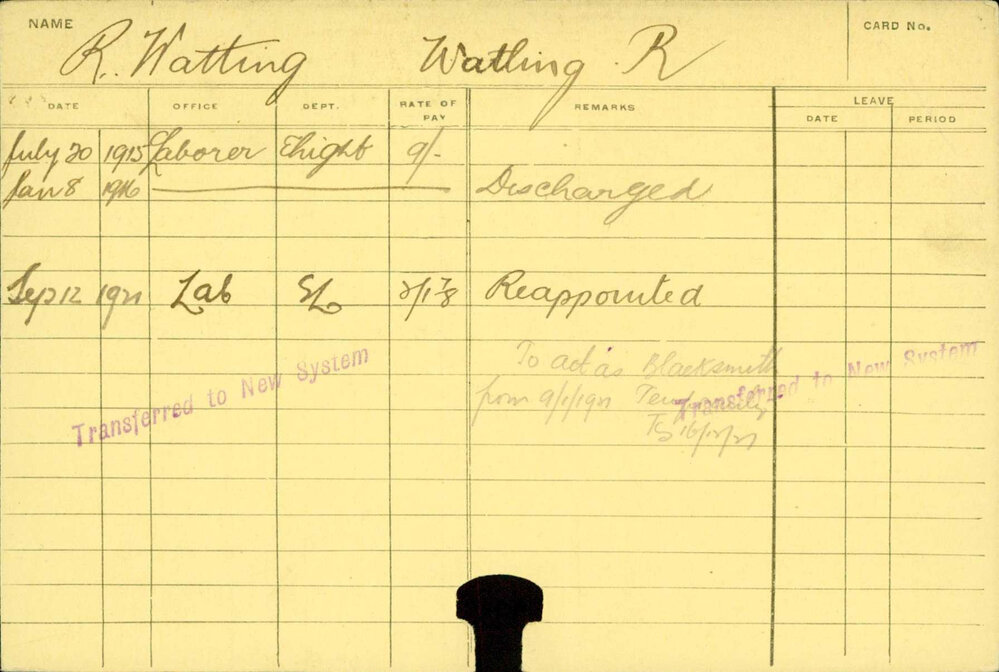 NAME
CARD No.
R. Watting Watling. R
DATE OFFICE DEPT. RATE OF PAY REMARKS LEAVE
DATE PERIOD
July 20 1915 Laborer Elight 9/-
Jan 8 1916 Discharged
Sep 12 1921 Lab EL Reappointed
To act as Blacksmith
from 9/1/1921
16/12/21
Transferred to New System
Transferred to New System